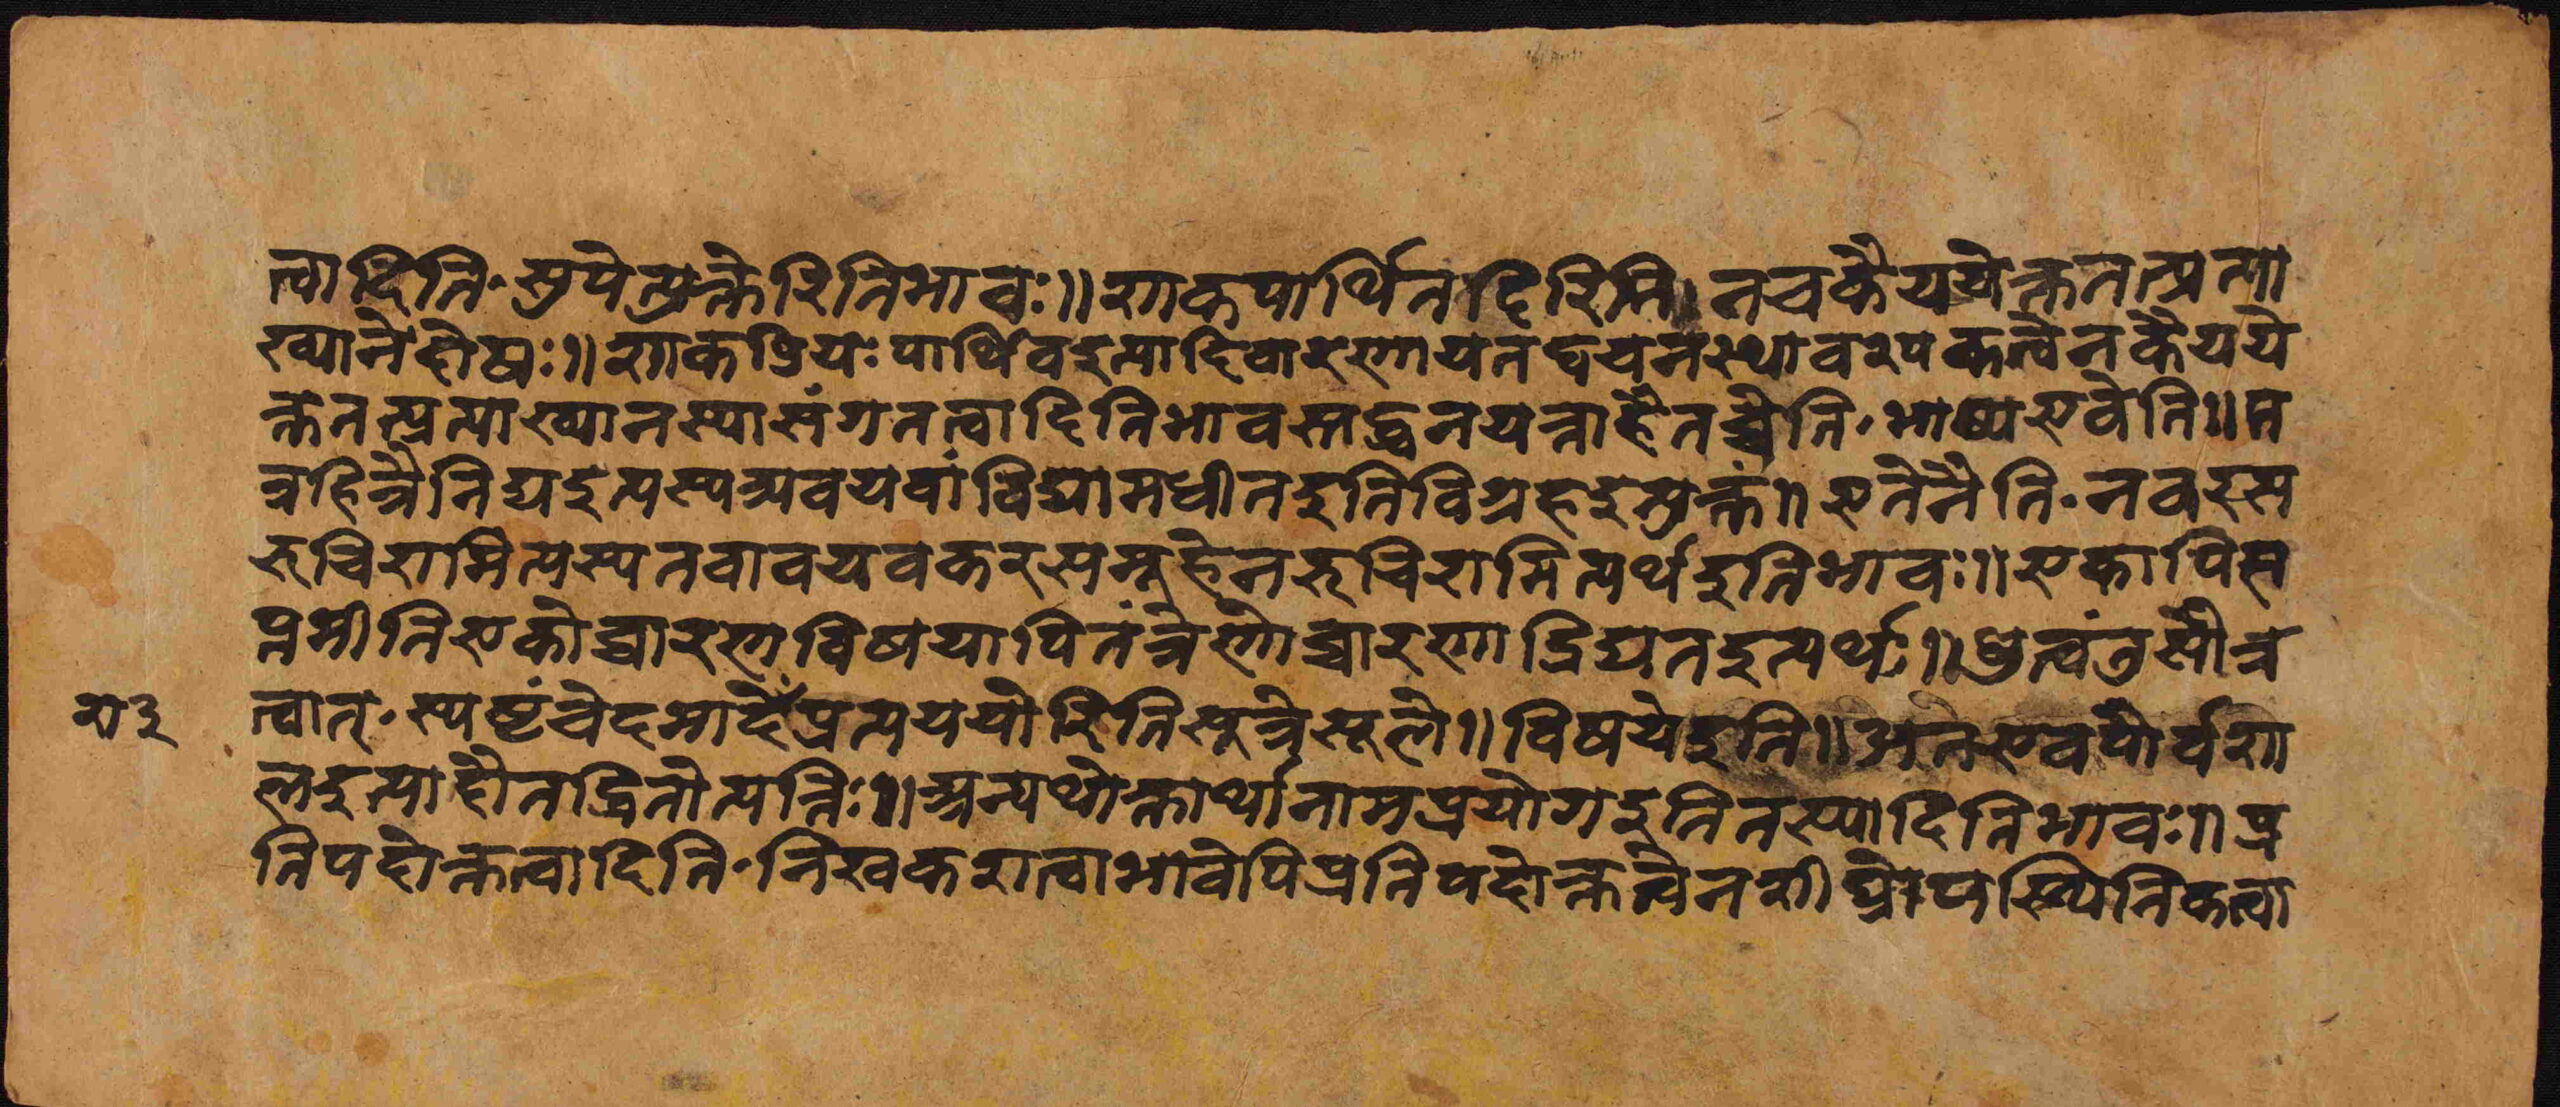 त्वादिति॰ सुपेत्युक्तेरितिभावः॥ शाकपार्थिवादिरिति॥ नचकैयटोक्ततत्प्रत्या
ख्यानेदोषः॥ शाकप्रियःपार्थिवइत्यादिवारणायतद्वचनस्यावश्यकत्वेनकैयटो
क्ततत्प्रत्याख्यानस्यासंगतत्वादितिभावस्तद्ध्वनयन्नाहैतच्चेति॰ भाष्यएवेति॥ त
त्रहित्रैविद्यइत्यस्यत्र्यवयवांविद्यामधीतइतिविग्रहइत्युक्तं॥ एतेनेति॰ नवरस
रुचिरामित्यस्यनवावयवकरससमूहेनरुचिरामित्यर्थइतिभावः॥ एकापिस
प्तमीतिएकोच्चारणविषयापितंत्रेणोच्चारणाद्भिद्यतइत्यर्थः॥ षत्वंतुसौत्र
त्वात्॰ स्पष्टंचेदमादेशप्रत्यययोरितिसूत्रेमूले॥ विषयेइति॥ अतएवपौर्वशा
लइत्यादौतद्धितोत्पत्तिः॥ अन्यथोक्तार्थानामप्रयोगइतिनस्यादितिभावः॥ प्र
तिपदोक्तत्वादिति॰ निरवकाशत्वाभावेपिप्रतिपदोक्तत्वेनशीघ्रोपस्थितिकत्वा